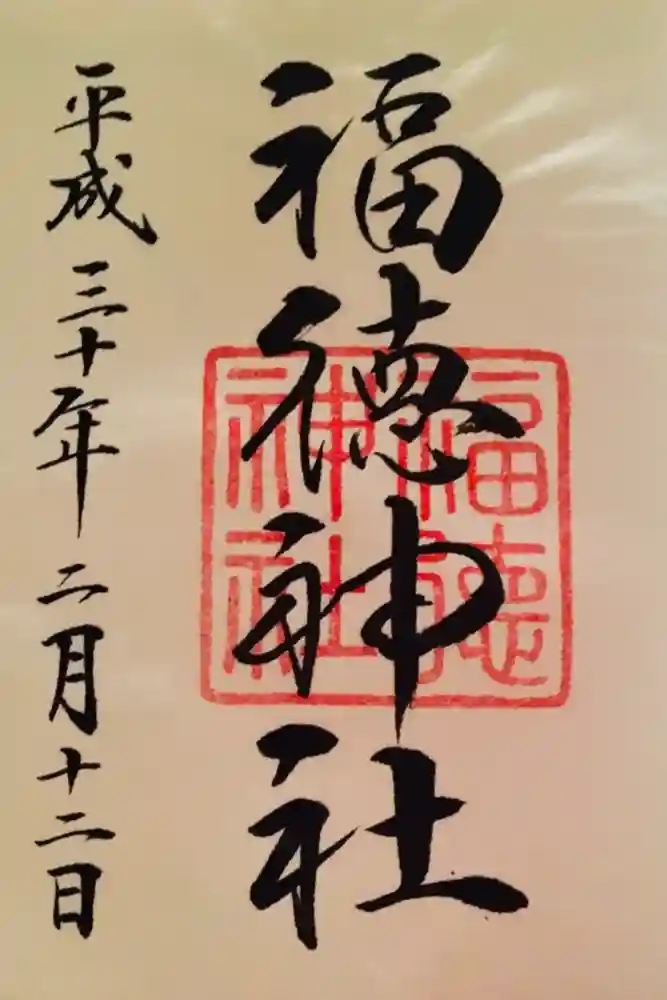 福徳神社
福徳
神社
平成三十年二月十二日